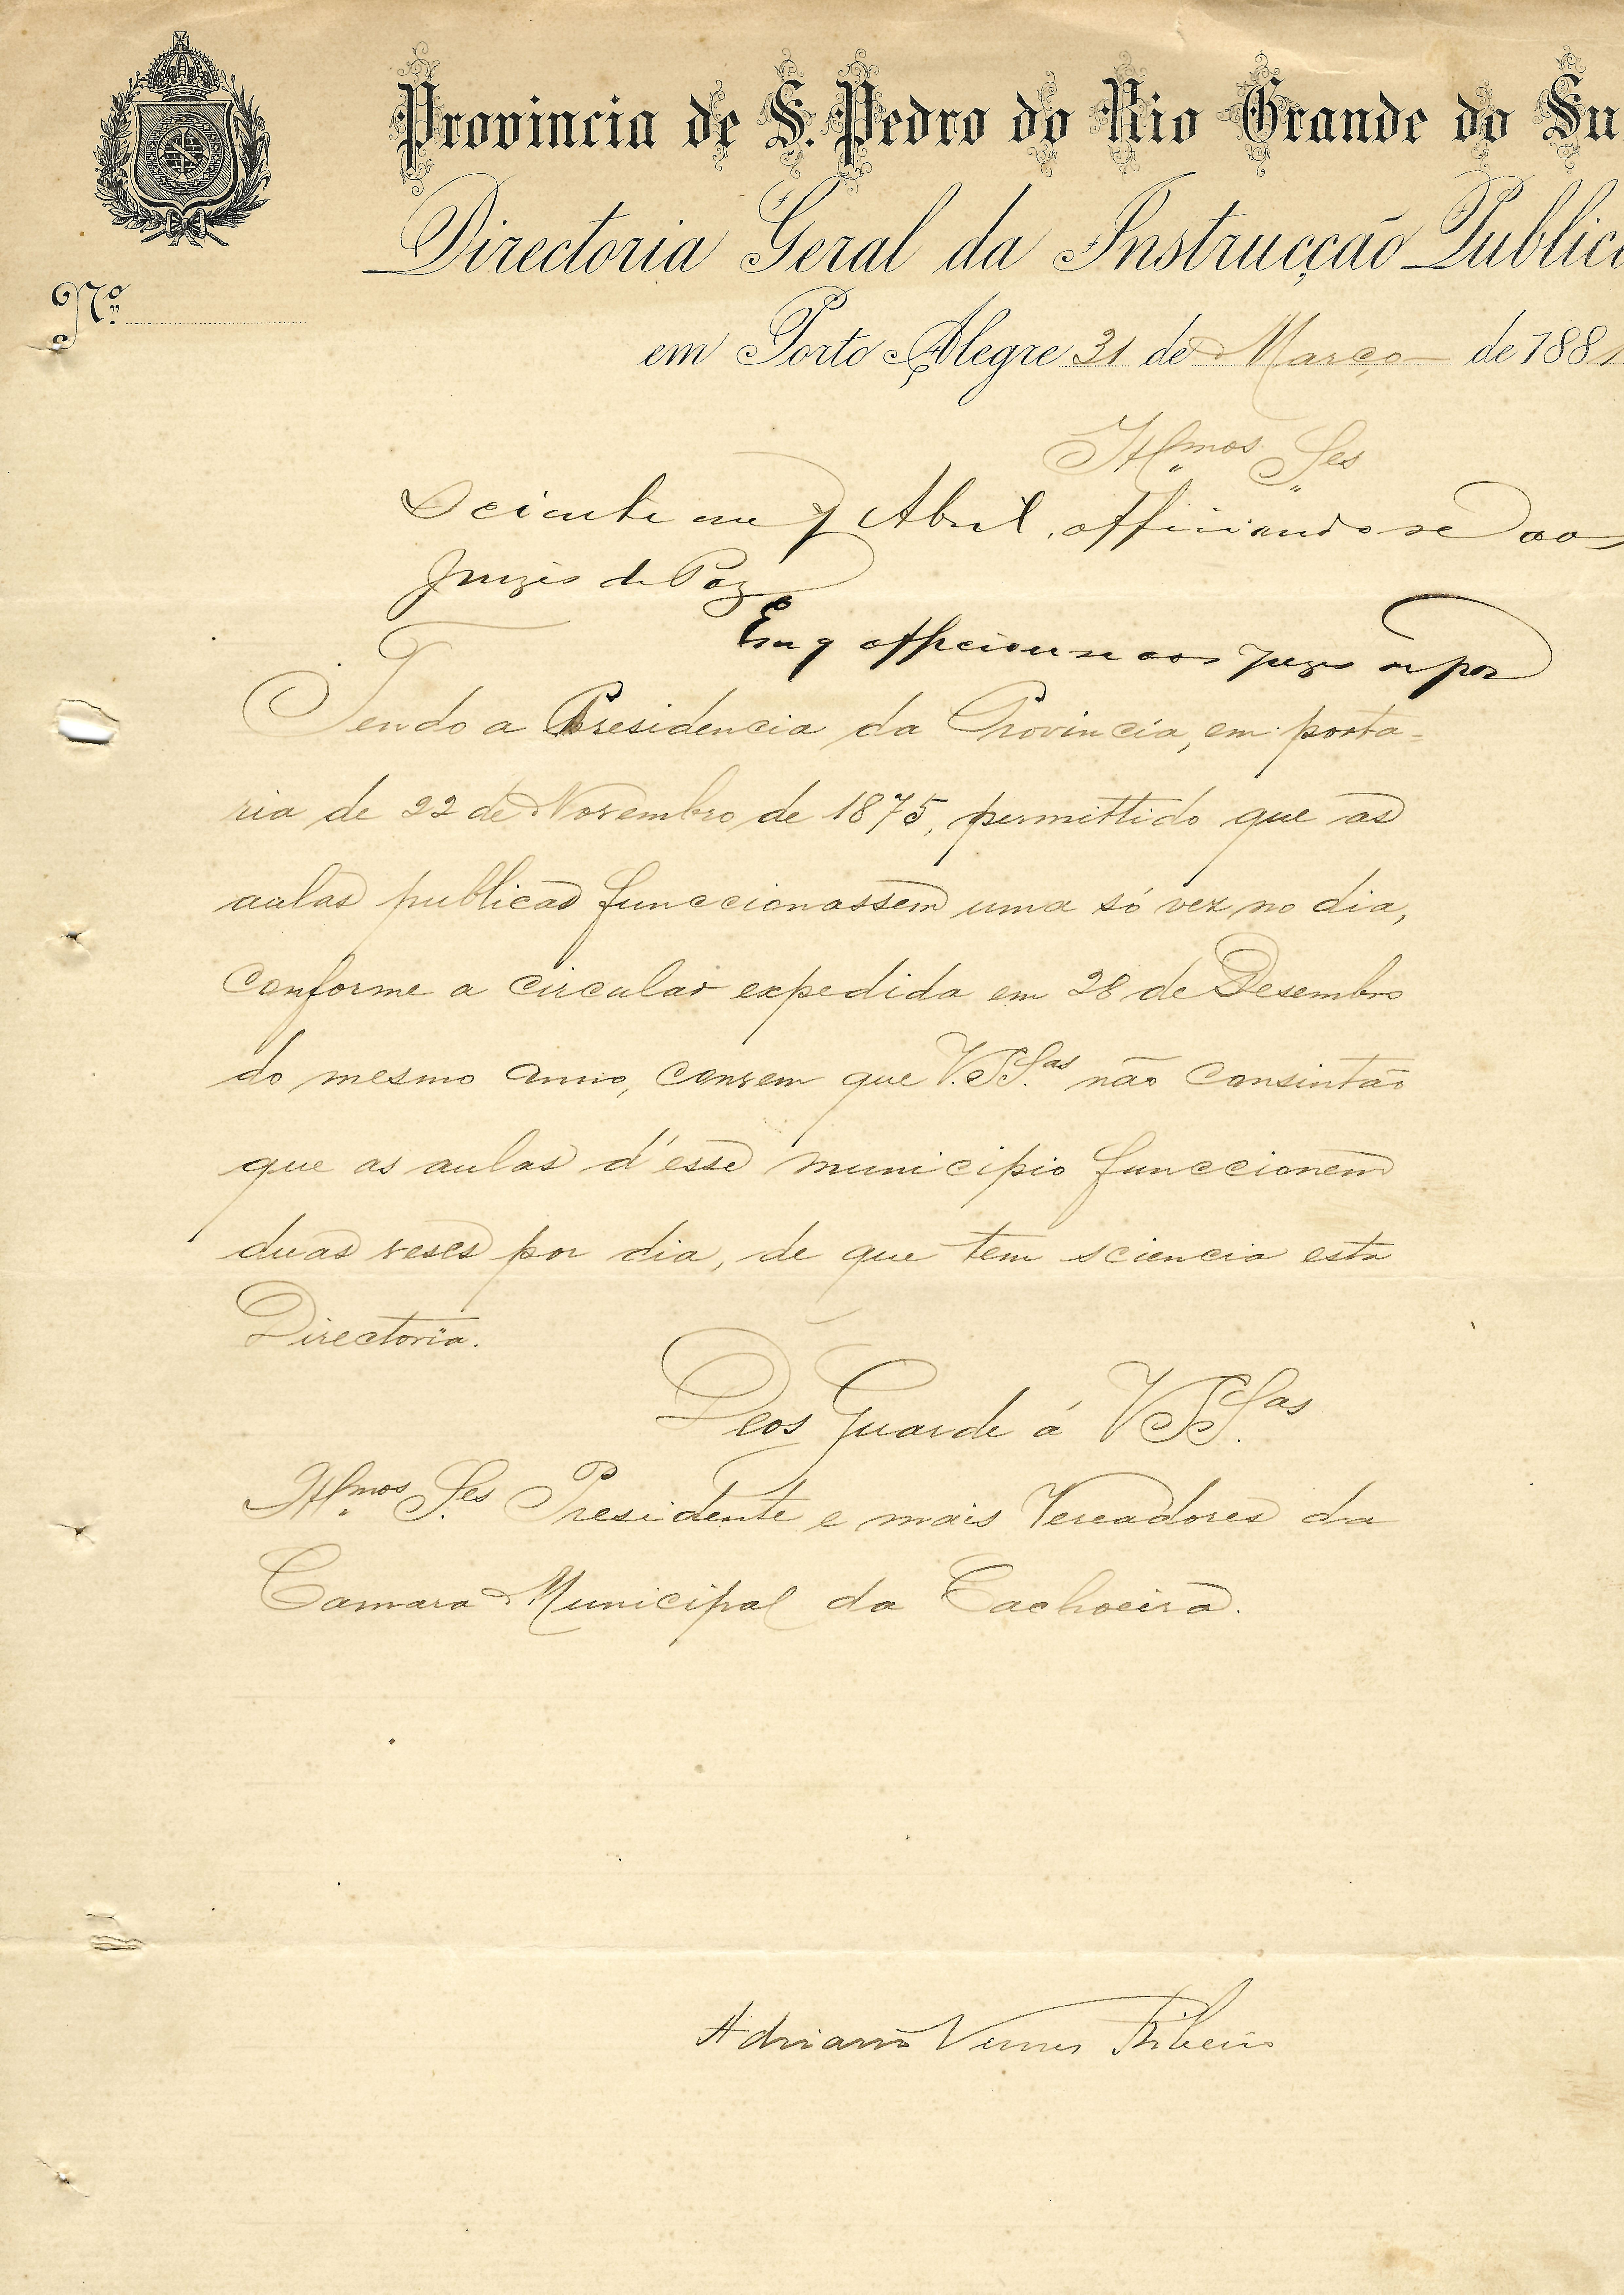 Provincia de S. Pedro do Rio Grande do Su
Directoria Geral da Instrucção Public
Nº
em Porto Alegre 31 de Março de 1881
Illmos Srs
Sciente em 7 Abril, officiando se aos
Juizes de Paz
Em 9 officiou se aos Juizes de paz
Tendo a Presidencia da Provincia, em porta-
ria de 22 de Novembro de 1875, permittido que as
aulas publicas funccionassem uma só vez no dia,
conforme a circular expedida em 28 de Desembro
do mesmo anno, convem que V.SSas não consintão
que as aulas d'esse municipio funccionem
duas veses por dia, de que tem sciencia esta
Directoria.
Deos Guarde á VSSas
Illmos Srs Presidente e mais Vereadores da
Camara Municipal da Cachoeira.
Adriano Nunes Ribeiro